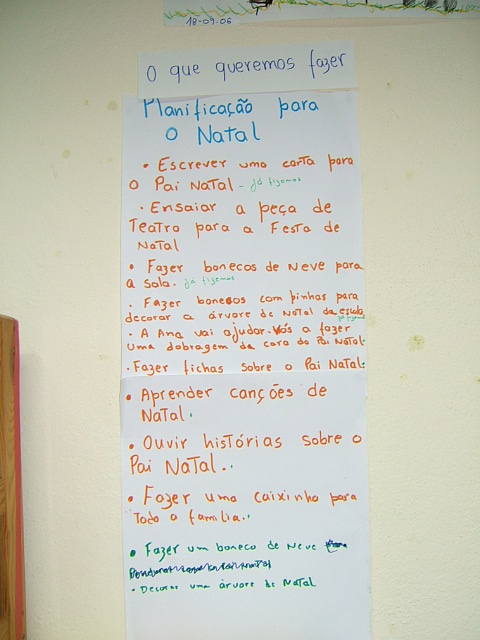 18-09-06
O que queremos fazer
Planificação para
o Natal
• Escrever uma carta para
o Pai Natal - já fizemos
• Ensaiar a peça de
Teatro para a Festa de
Natal
• Fazer bonecos de Neve para
a sala. já fizemos
• Fazer bonecos com pinhas para
decorar a árvore de Natal da escola
já fizemos
• A Ana vai ajudar-nos a fazer
uma dobragem da cara do Pai Natal.
• Fazer fichas sobre o Pai Natal.
• Aprender canções de
Natal.
• Ouvir histórias sobre o
Pai Natal..
• Fazer uma caixinha para
Toda a família..
• Fazer um boneco de Neve
• Decorar uma árvore de Natal